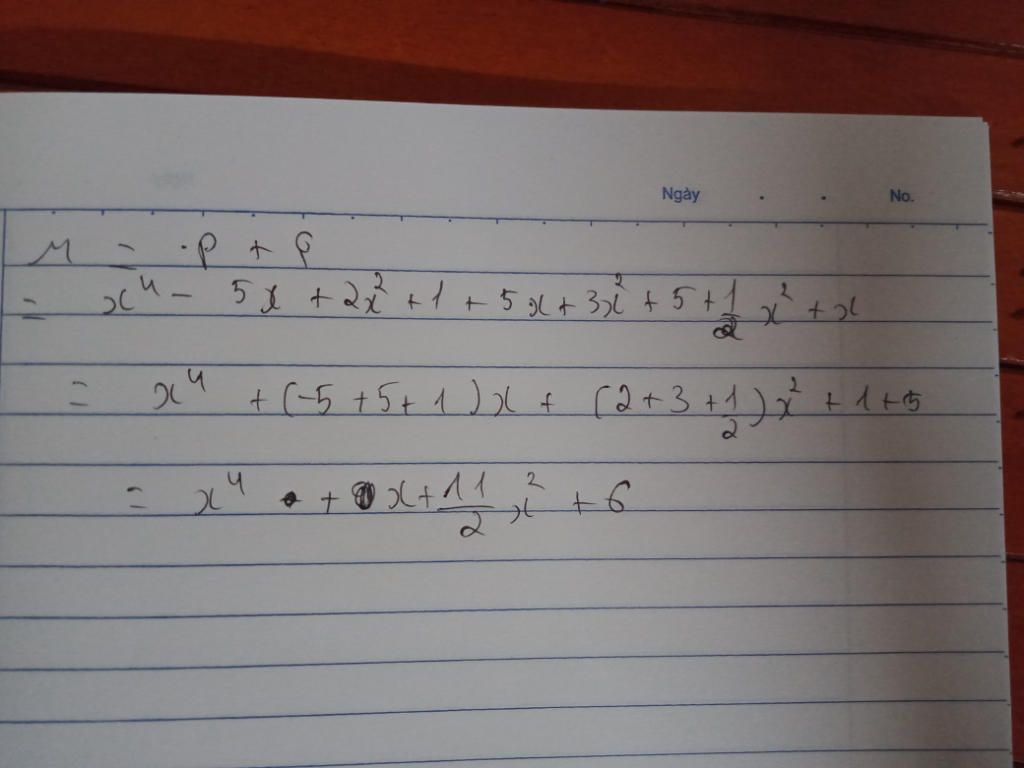 Ngày . . No.
M = .P + Q
= x⁴ - 5x + 2x² + 1 + 5x + 3x² + 5 + 1/2 x² + x
= x⁴ + (-5 + 5 + 1)x + (2 + 3 + 1/2)x² + 1 + 5
= x⁴ + x + 11/2 x² + 6